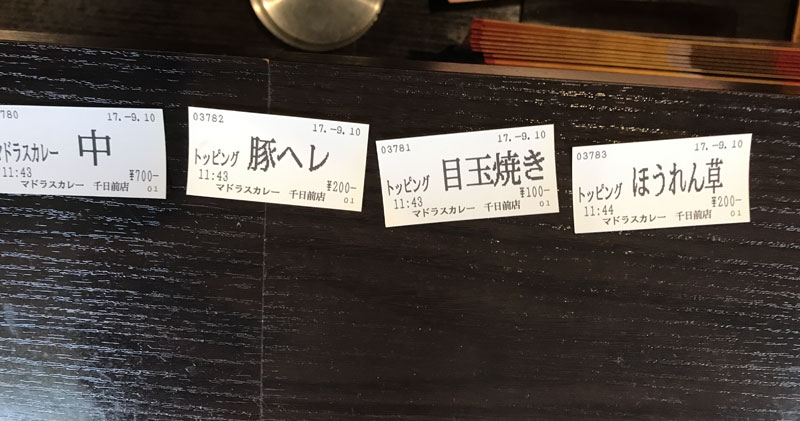 780 17.-9.10
マドラスカレー 中
11:43 ¥700-
マドラスカレー 千日前店 01
03782 17.-9.10
トッピング 豚ヘレ
11:43 ¥200-
マドラスカレー 千日前店 01
03781 17.-9.10
トッピング 目玉焼き
11:43 ¥100-
マドラスカレー 千日前店 01
03783 17.-9.10
トッピング ほうれん草
11:44 ¥200-
マドラスカレー 千日前店 01